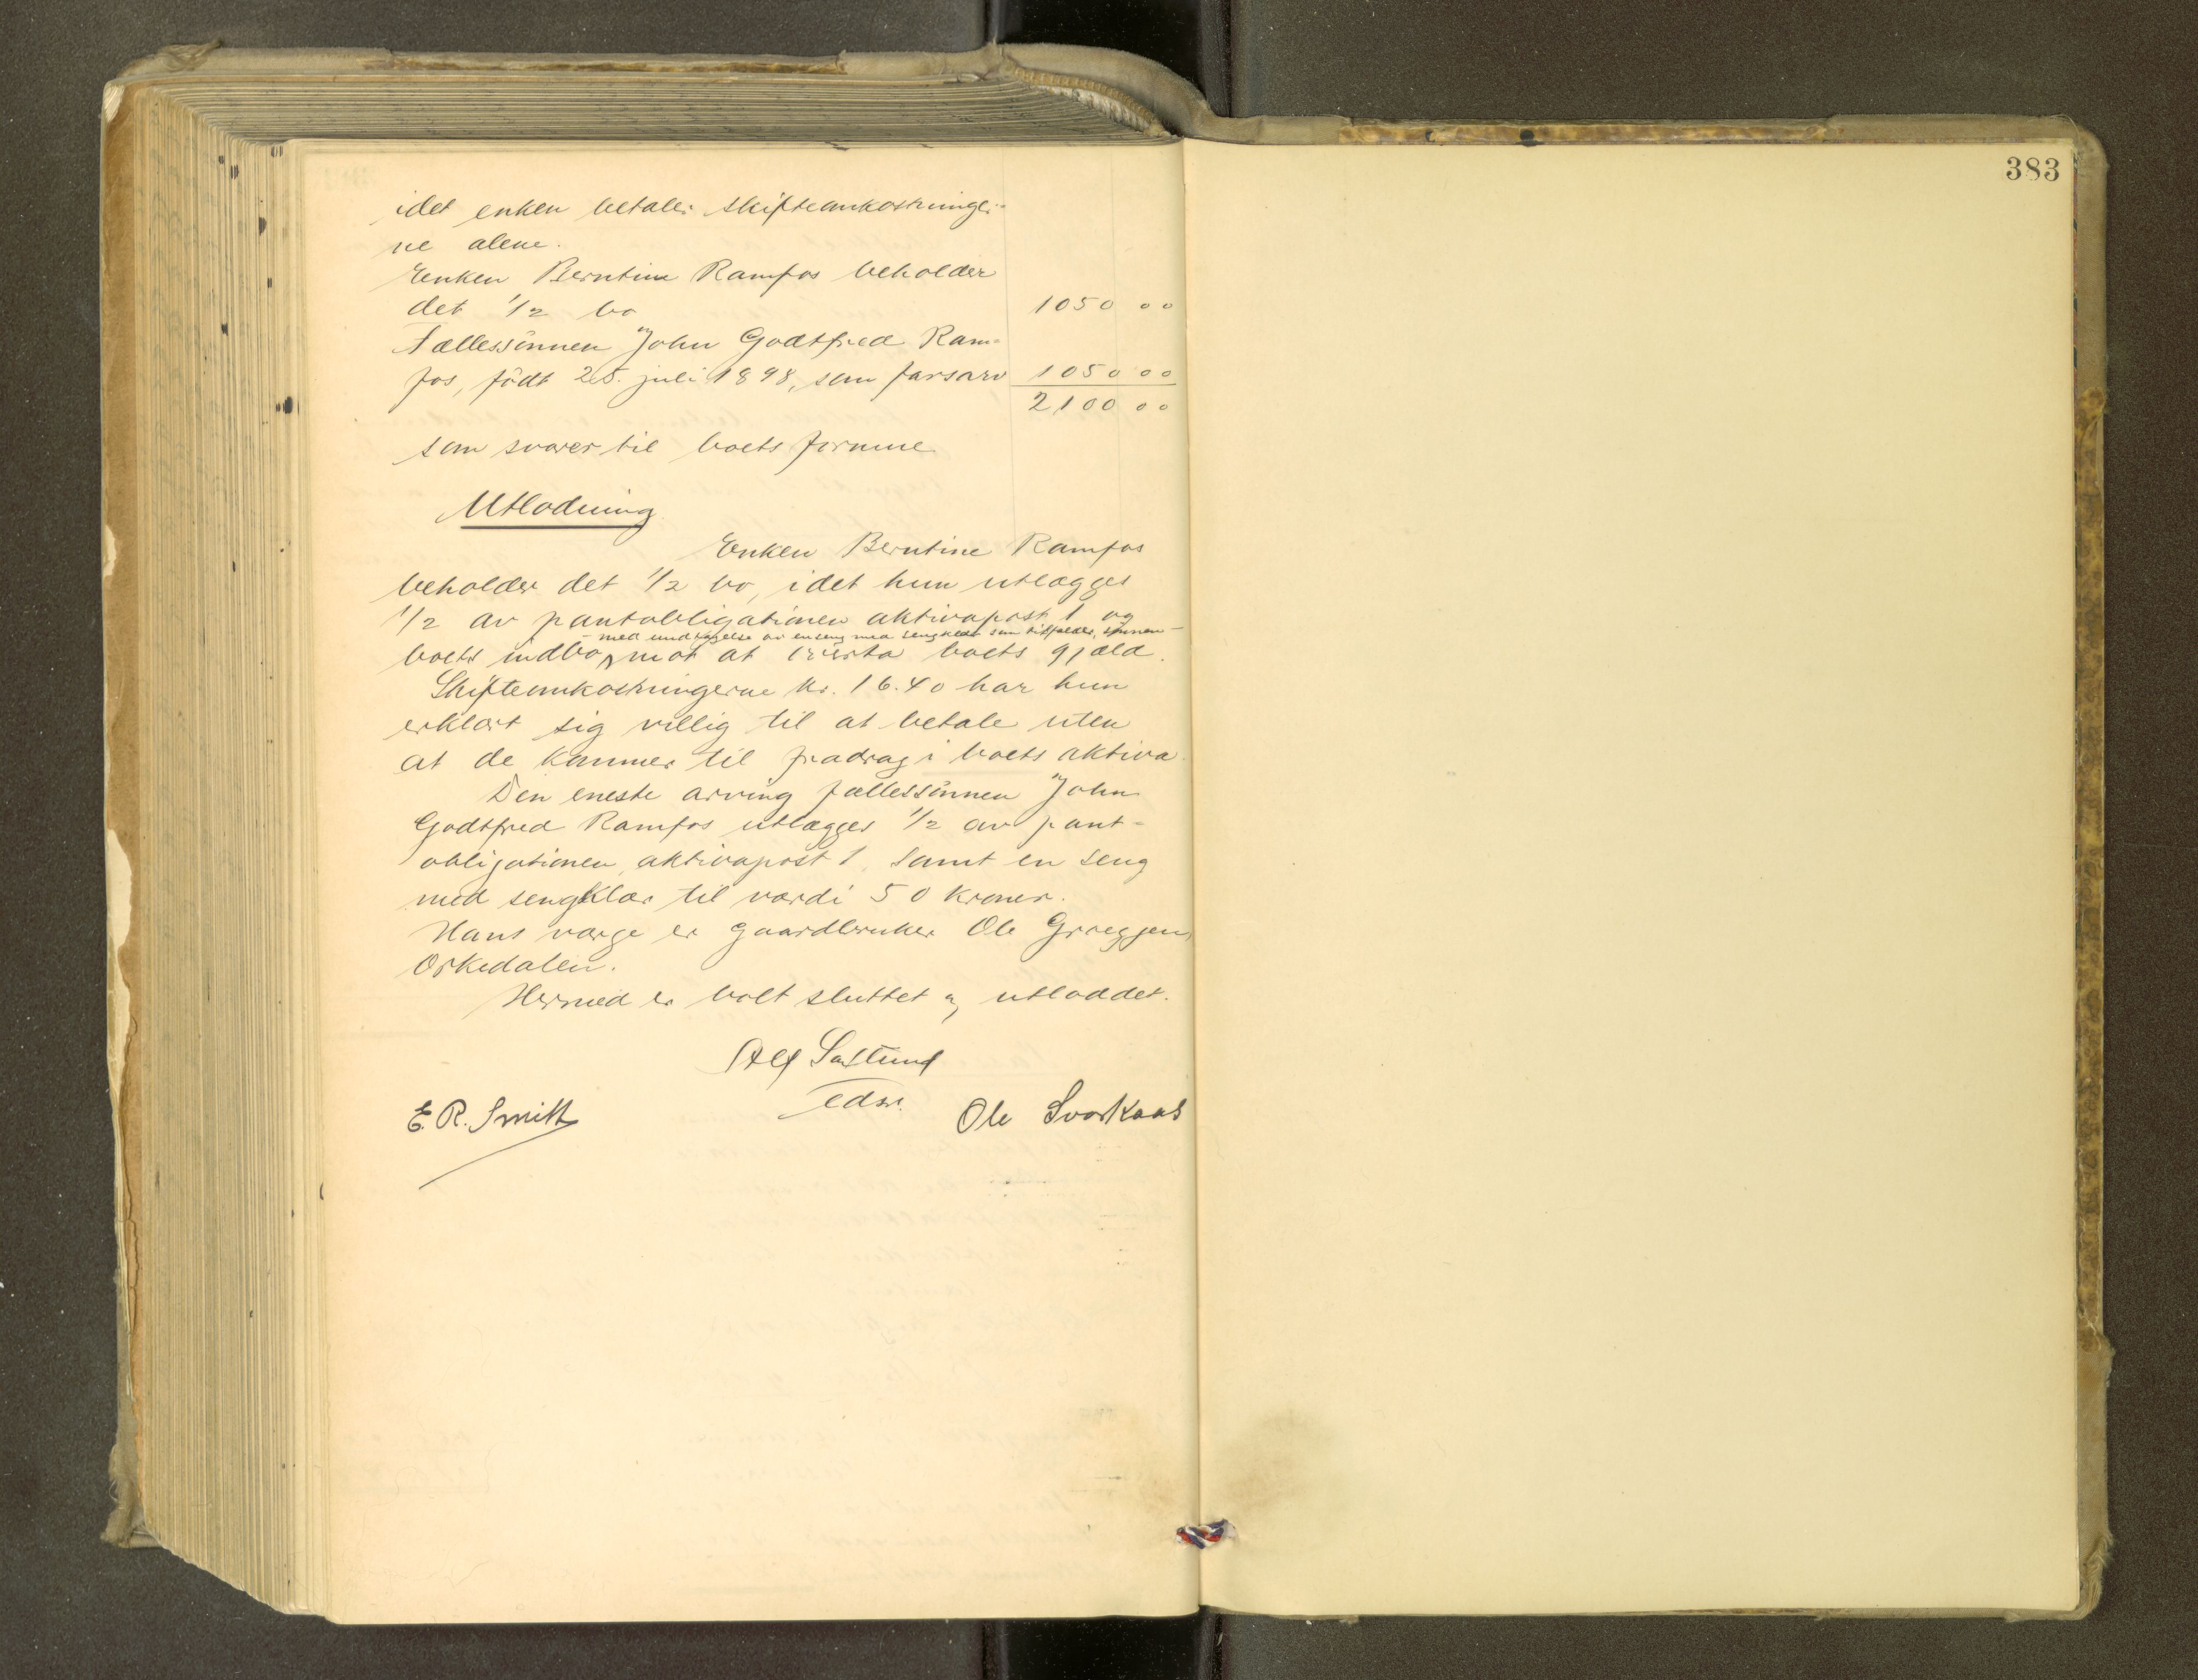 383
idet enken betaler skifteomkostninger-
ne alene.
Enken Berntine Ramfos beholder
det 1/2 bo 1050 00
Fællessönnen John Godtfred Ram-
fos, födt 25. juli 1898, som farsarv 1050 00
2100 00
som svarer til boets formue
Utlodning
Enken Berntine Ramfos
beholder det 1/2 bo, idet hun utlægges
1/2 av pantobligationen aktivapost 1 og
- med undtagelse av en seng med sengklær som tilfalder sønnen -
boets indbo, mot at boets gjæld.
Skifteomkostningerne kr. 16.40 har hun
erklært sig villig til at betale uten
at de kommer til fradrag i boets aktiva.
Den eneste arving fællessönnen John
Godtfred Ramfos utlægges 1/2 av pant-
obligationen, aktivapost 1, samt en seng
med sengklær til værdi 50 kroner.
Hans værge er gaardbruker Ole
Orkedalen.
Hermed er boet sluttet og utloddet.
Alf
edsv.
E. R. Smith Ole Svorkaas